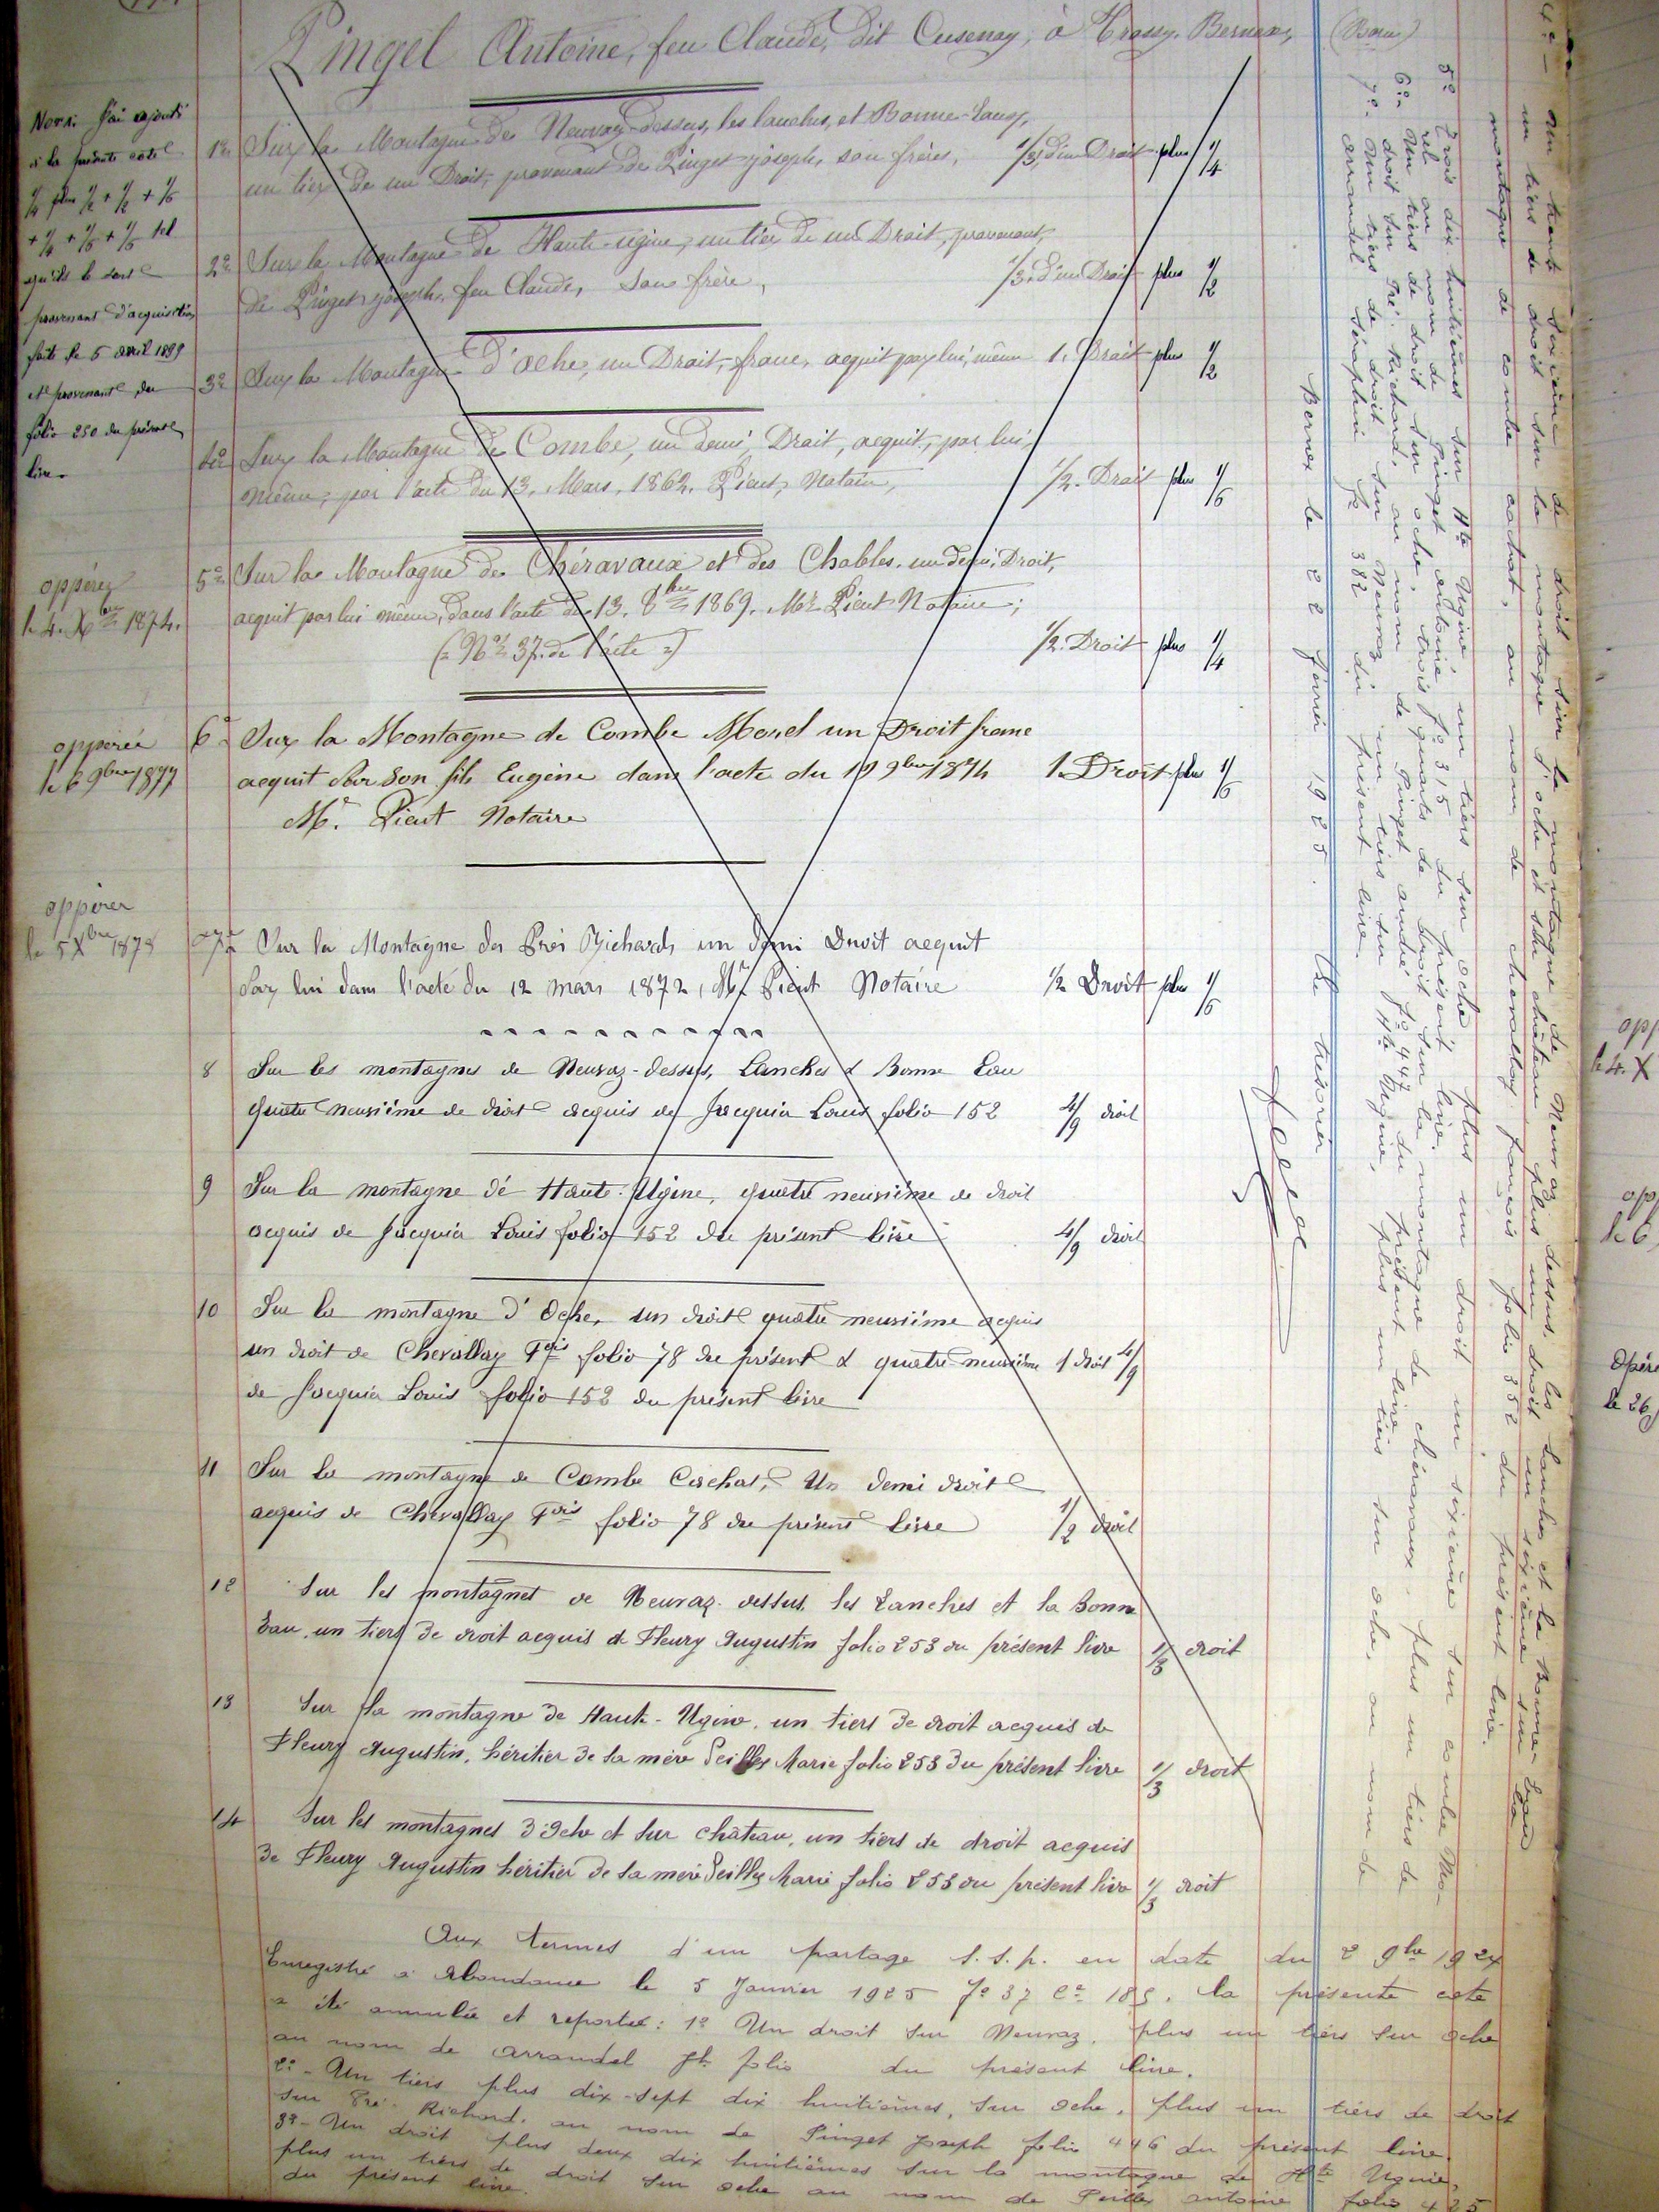 Pinget Antoine, feu Claude, dit Cusenay, à Trossy, Bernex,
Nota: J'ai ajouté
à la présente cote
1/4 plus 1/2 + 1/2 + 1/6
+ 1/4 + 1/6 + 1/6 tel
qu'ils le sont
provenant d'acquisition
faite le 5 avril 1899
et provenant du
folio 250 du présent
livre
1º Sur la Montagne de Neuvaz-dessus, les lanches, et Bonne-Eau,
un tiers de un Droit, provenant de Pinget joseph, son frère, 1/3 d'un Droit plus 1/4
2º Sur la Montagne de Haute-ugine, un tier de un Droit, provenant,
de Pinget joseph, feu Claude, son frère, 1/3 d'un Droit plus 1/2
3º Sur la Montagne d'oche, un Droit franc, acquit par lui, même 1. Droit plus 1/2
4º Sur la Montagne de Combe, un demi Droit, acquit, par lui,
même, par l'acte du 13. Mars, 1862. Pieut, Notaire, 1/2. Droit plus 1/6
opperez
le 4. Xbre 1874.
5º Sur la Montagne de Chéravaux et des Chables, un demi Droit,
acquit par lui même, dans l'acte du 13. 8bre 1869. Mr Pieut Notaire;
(= Nº 37. de l'acte =) 1/2. Droit plus 1/4
opperée
le 6 9bre 1877
6º Sur la Montagne de Combe Morel un Droit franc
acquit par son fils Eugène dans l'acte du 19 9bre 1874 1. Droit plus 1/6
Mr. Pieut Notaire
oppérer
le 5 Xbre 1878
7º Sur la Montagne des Prés Richards un demi Droit acquit
Par lui dans l'acte du 12 mars 1872, Mr Pieut Notaire 1/2 Droit plus 1/6
8 Sur les montagnes de Neuvaz-dessus, Lanches & Bonne Eau
quatre neuvième de droit acquis de Jacquier Louis folio 152 4/9 droit
9 Sur la montagne de Haute-Ugine, quatre neuvième de droit
acquis de Jacquier Louis folio 152 du présent livre 4/9 droit
10 Sur la montagne d'Oche, un droit quatre neuvième acquis
un droit de Chevallay Fois folio 78 du présent & quatre neuvième 1 droit 4/9
de Jacquier Louis folio 152 du présent livre
11 Sur la montagne de Combe Cachat, Un demi droit
acquis de Chevallay Fois folio 78 du présent livre 1/2 droit
12 Sur les montagnes de Neuvaz-dessus, les Lanches et la Bonne
Eau, un tiers de droit acquis de Fleury Augustin folio 253 du présent livre 1/3 droit
13 Sur la montagne de Haute-Ugine, un tiers de droit acquis de
Fleury Augustin, héritier de sa mère Peilley Marie folio 253 du présent livre 1/3 droit
14 Sur les montagnes d'Oche et sur château, un tiers de droit acquis
de Fleury Augustin héritier de sa mère Peilley Marie folio 253 du présent livre 1/3 droit
Aux termes d'un partage s.s.p. en date du 2 9bre 1924
Enregistré à Abondance le 5 Janvier 1925 fº 37 Cº 185, la présente cote
a été annulée et reportée: 1º Un droit sur Neuvaz, plus un tiers sur oche
au nom de Arrandel Jh folio du présent livre.
2º- Un tiers plus dix-sept dix huitièmes, sur oche, plus un tiers de droit
sur Pré Richard, au nom de Pinget Joseph folio 446 du présent livre.
3º- Un droit plus deux dix huitièmes sur la montagne de Hte Ugine,
plus un tiers de droit sur oche au nom de Peilley antoine folio 425
du présent livre.
4º- Un trente sixième de droit sur la montagne de Neuvaz dessus, les Lanches et la Bonne Eau
un tiers de droit sur la montagne d'oche et sur château, plus un droit un sixième sur la
montagne de combe cachat, au nom de chevallay françois folio 352 du présent livre.
5º Trois dix huitièmes sur Hte Ugine un tiers sur oche plus un droit un sixième sur combe Mo-
rel au nom de Pinget antoine fº 315 du présent livre.
6º- Un tiers de droit sur oche, trois quarts de droit sur la montagne de chéravaux, plus un tiers de
droit sur Pré Richard, au nom de Pinget andré fº 447 du présent livre.
7º- Un tiers de droit sur Neuvaz, un tiers sur Hte Ugine, plus un tiers sur oche, au nom de
arrandel Séraphin fº 382 du présent livre.
Bernex le 22 février 1925. Le trésorier
opp
le 4. X
opp
le 6
Opéré
le 26